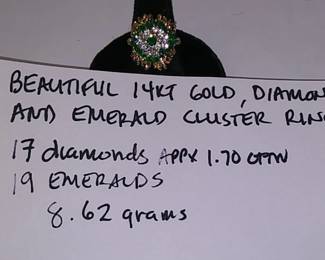 BEAUTIFUL 14KT GOLD, DIAMON
AND EMERALD CLUSTER RIN
17 diamonds APPX 1.70 CTTW
19 EMERALDS
8.62 grams